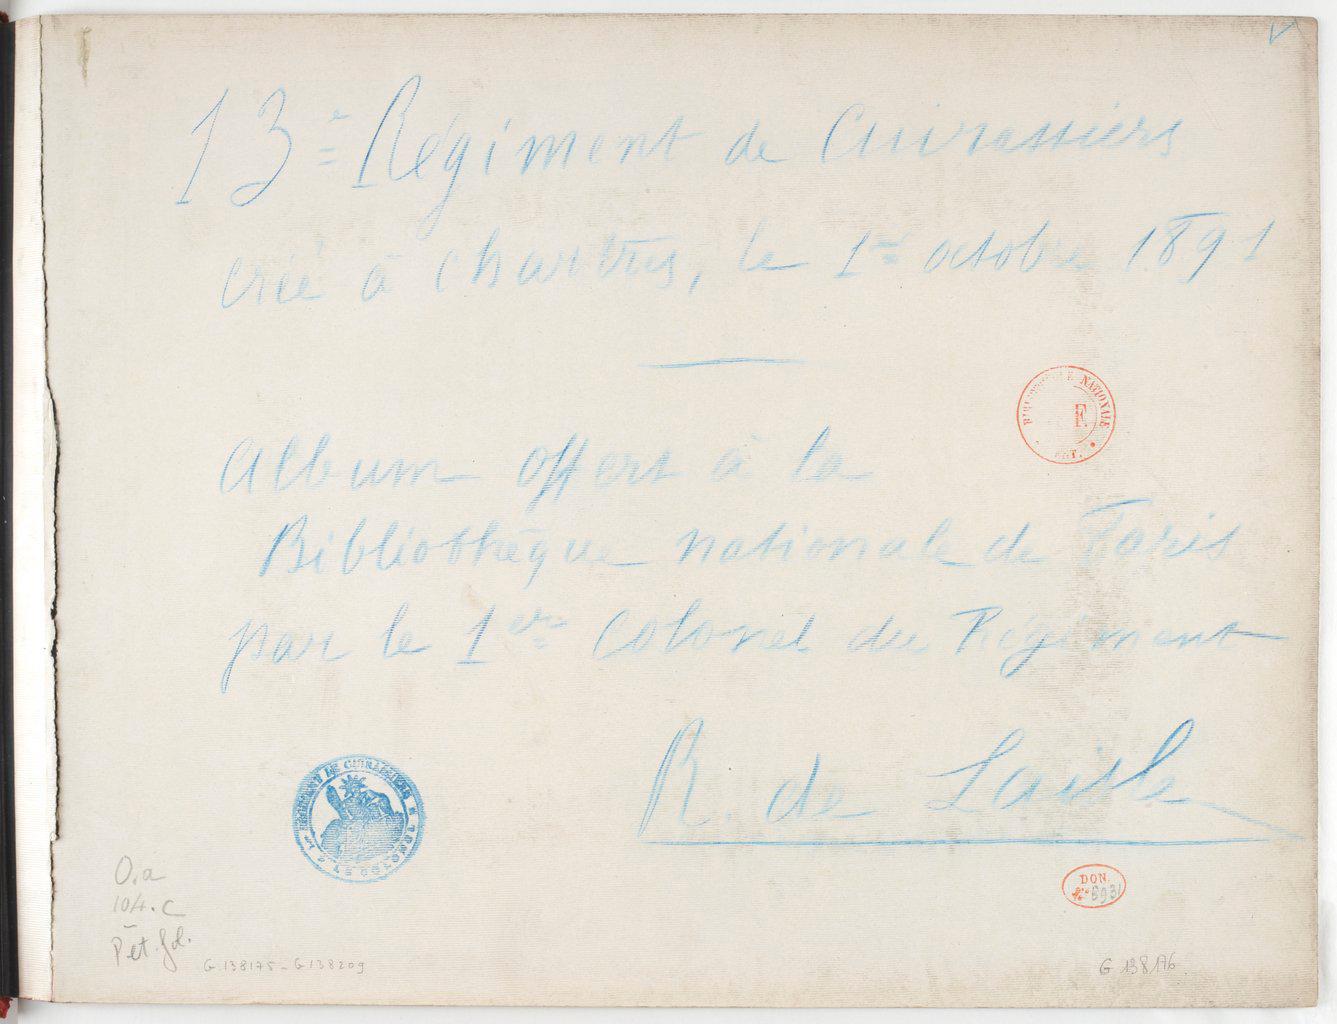 13e Régiment de Cuirassiers
créé à Chartres, le 1er octobre 1891
Album offert à la
Bibliothèque nationale de Paris
par le 1er Colonel du Régiment
R. de Laisle
BIBLIOTHÈQUE NATIONALE
EST.
RÉGIMENT DE CUIRASSIERS
LE COLONEL
DON.
No
O.a
104.c
Pet. fol.
G.138175-G138209
G 138176